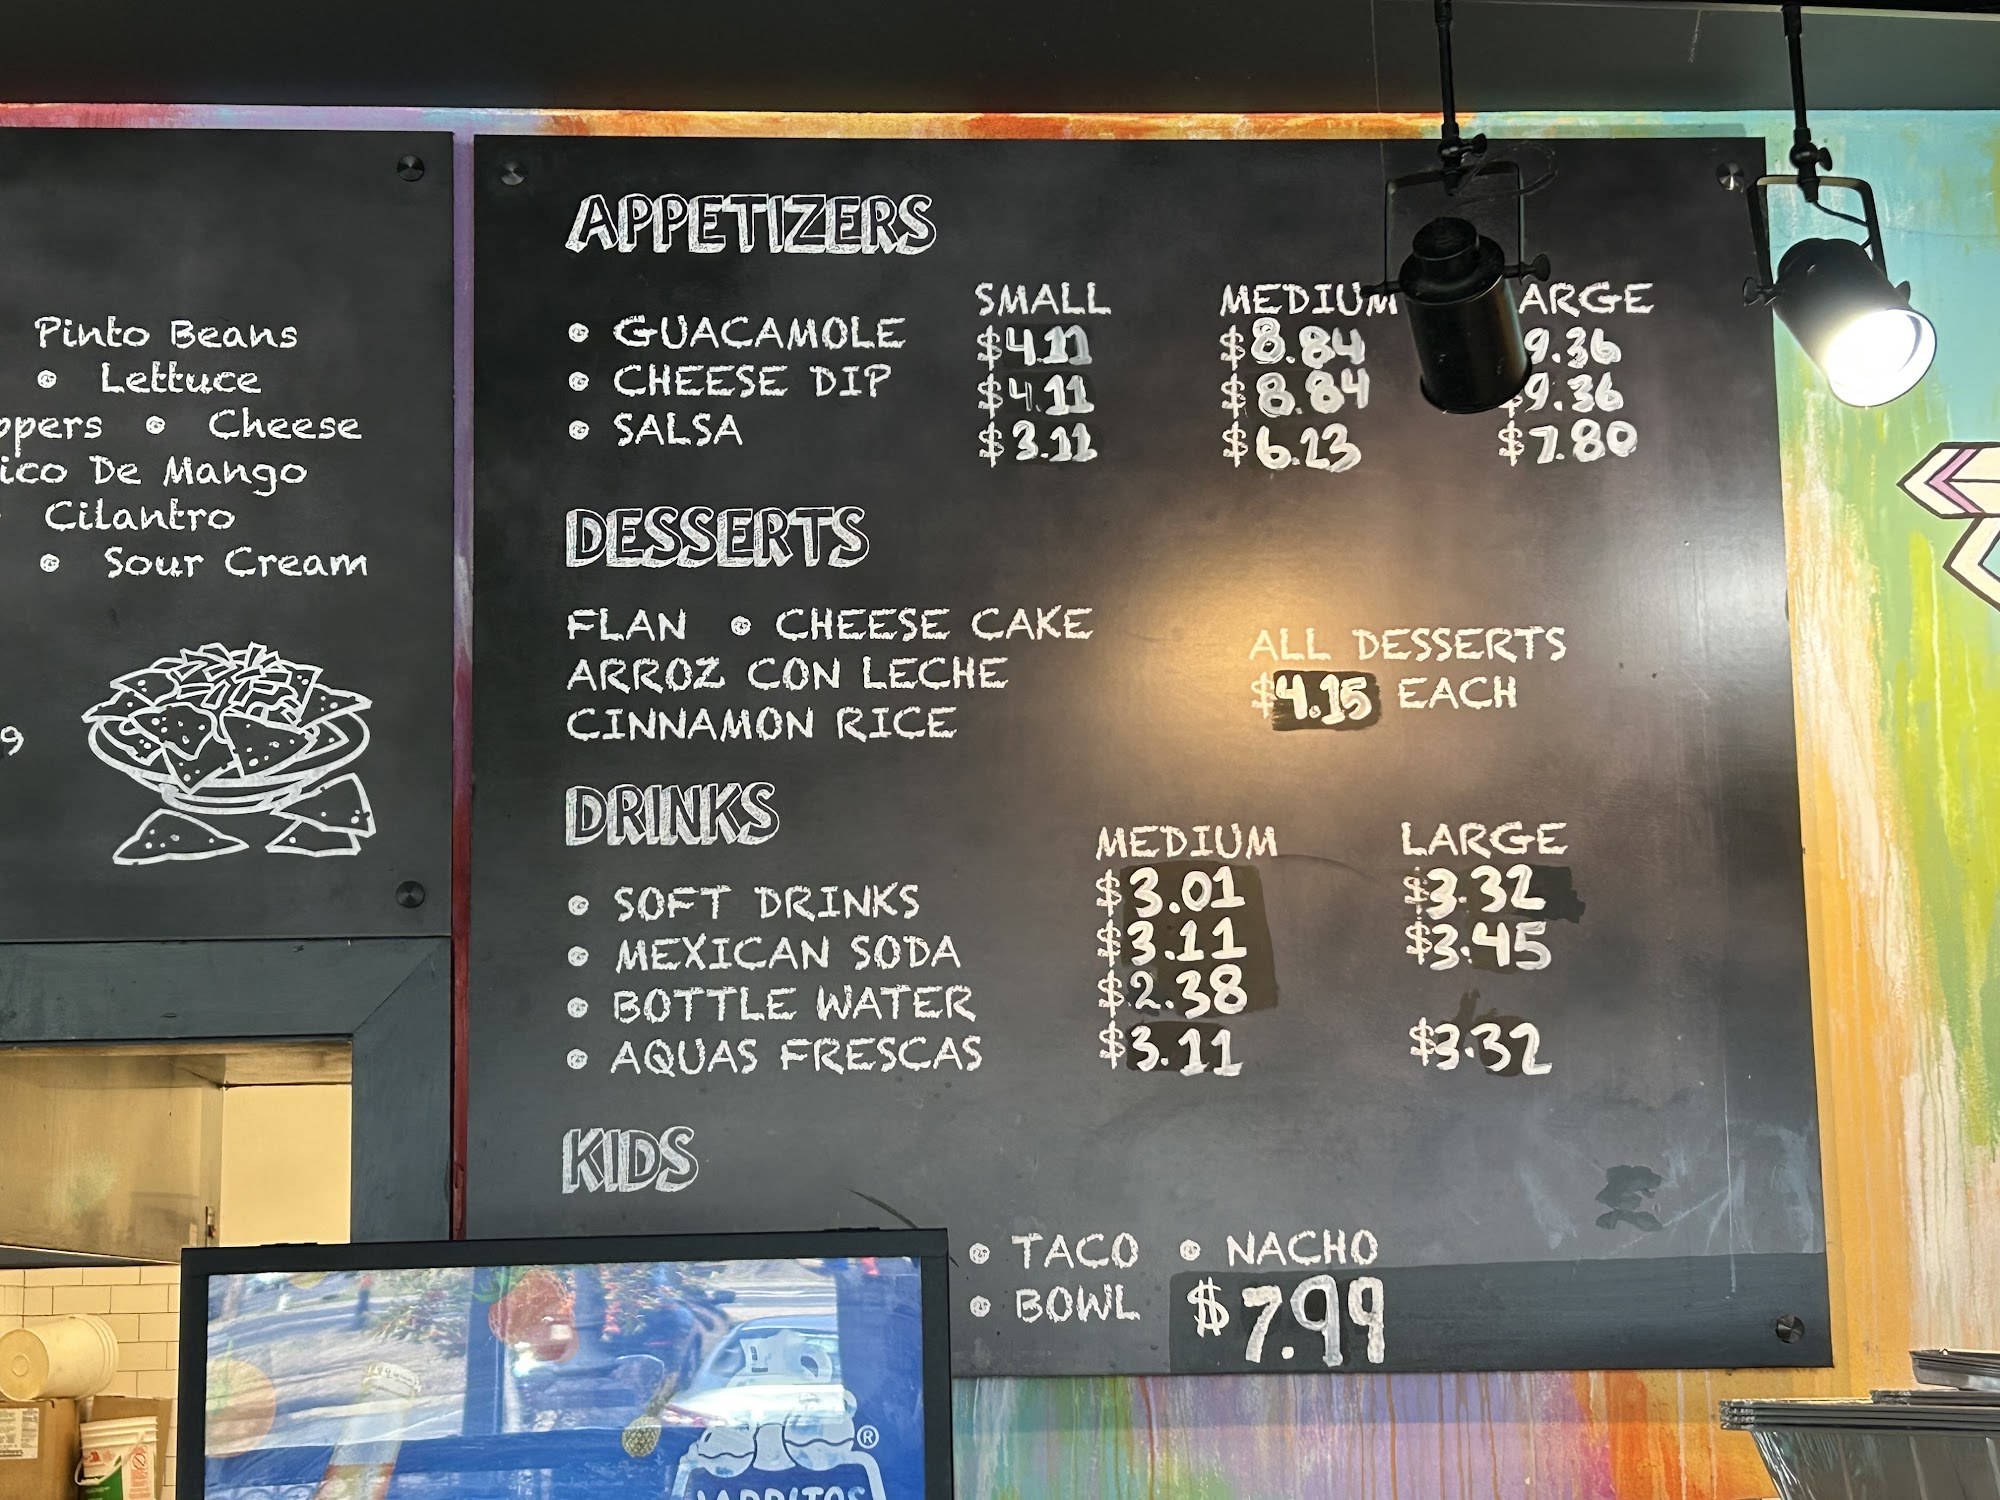 Pinto Beans
• Lettuce
ppers • Cheese
ico De Mango
Cilantro
• Sour Cream
9
APPETIZERS
SMALL MEDIUM ARGE
• GUACAMOLE $4.11 $8.84 9.36
• CHEESE DIP $4.11 $8.84 $9.36
• SALSA $3.11 $6.23 $7.80
DESSERTS
FLAN • CHEESE CAKE
ARROZ CON LECHE
CINNAMON RICE
ALL DESSERTS
$4.15 EACH
DRINKS
MEDIUM LARGE
• SOFT DRINKS $3.01 $3.32
• MEXICAN SODA $3.11 $3.45
• BOTTLE WATER $2.38
• AQUAS FRESCAS $3.11 $3.32
KIDS
• TACO • NACHO
• BOWL $7.99
®
JARRITOS